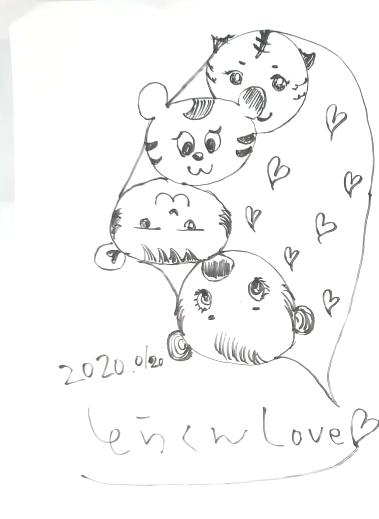 2020.01/20
とらくん Love♡